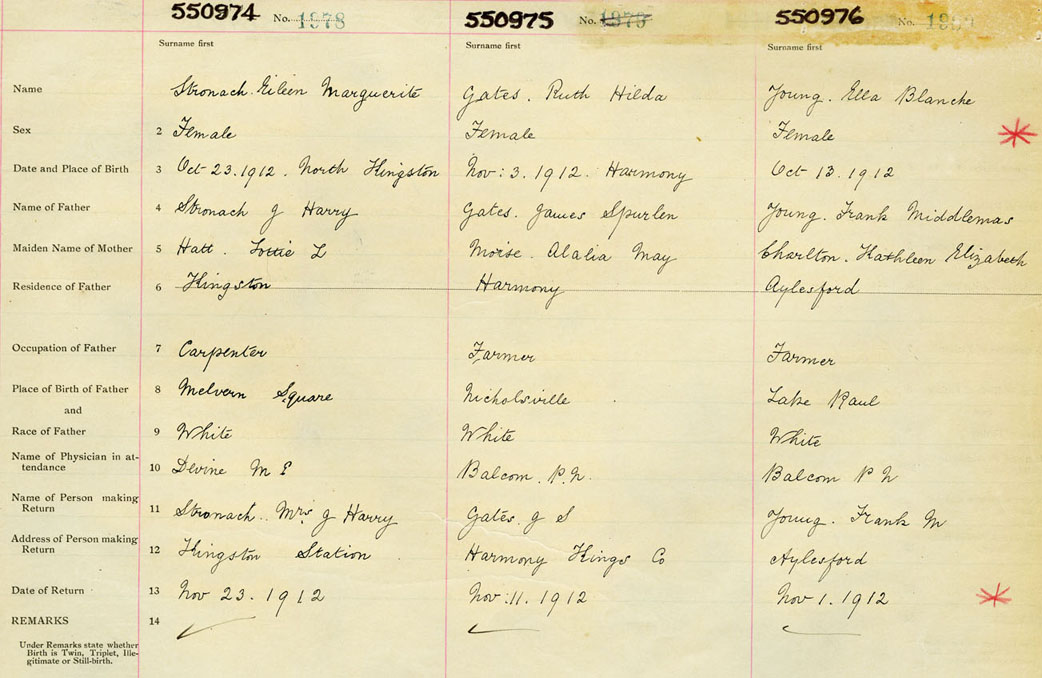 550974 No. 1978 550975 No. 1979 550976 No.
Surname first Surname first Surname first
Name Stronach. Eileen Marguerite Gates. Ruth Hilda Young. Ella Blanche
Sex 2 Female Female Female
Date and Place of Birth 3 Oct 23.1912. North Kingston Nov: 3. 1912. Harmony Oct 13. 1912
Name of Father 4 Stronach J Harry Gates. James Spurlen Young. Frank Middlemas
Maiden Name of Mother 5 Hatt. Lottie L Morse. Alalia May Charlton. Kathleen Elizabeth
Residence of Father 6 Kingston Harmony Aylesford
Occupation of Father 7 Carpenter Farmer Farmer
Place of Birth of Father 8 Melvern Square Nicholsville Lake Paul
and
Race of Father 9 White White White
Name of Physician in at-
tendance 10 Devine M E Balcom. P.N. Balcom P N
Name of Person making
Return 11 Stronach. Mrs J Harry Gates. J S Young. Frank M
Address of Person making
Return 12 Kingston Station Harmony Kings Co Aylesford
Date of Return 13 Nov 23. 1912 Nov: 11. 1912 Nov 1. 1912
REMARKS 14
Under Remarks state whether
Birth is Twin, Triplet, Ille-
gitimate or Still-birth.